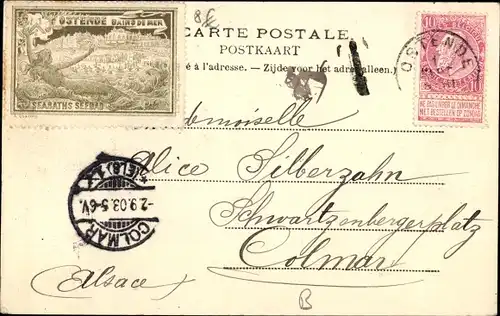 OSTENDE
BAINS DE MER
SEABATHS SEEBAD
CARTE POSTALE
POSTKAART
é à l'adresse. — Zijde voor het adres alleen.
10
OSTENDE
NE PAS LIVRER LE DIMANCHE
NIET BESTELLEN OP ZONDAG
demoiselle
Alice Silberzahn
Schwartzenbergerplatz
Colmar
Alsace
COLMAR
-2.9.03.5-6V.
(ELS)
B